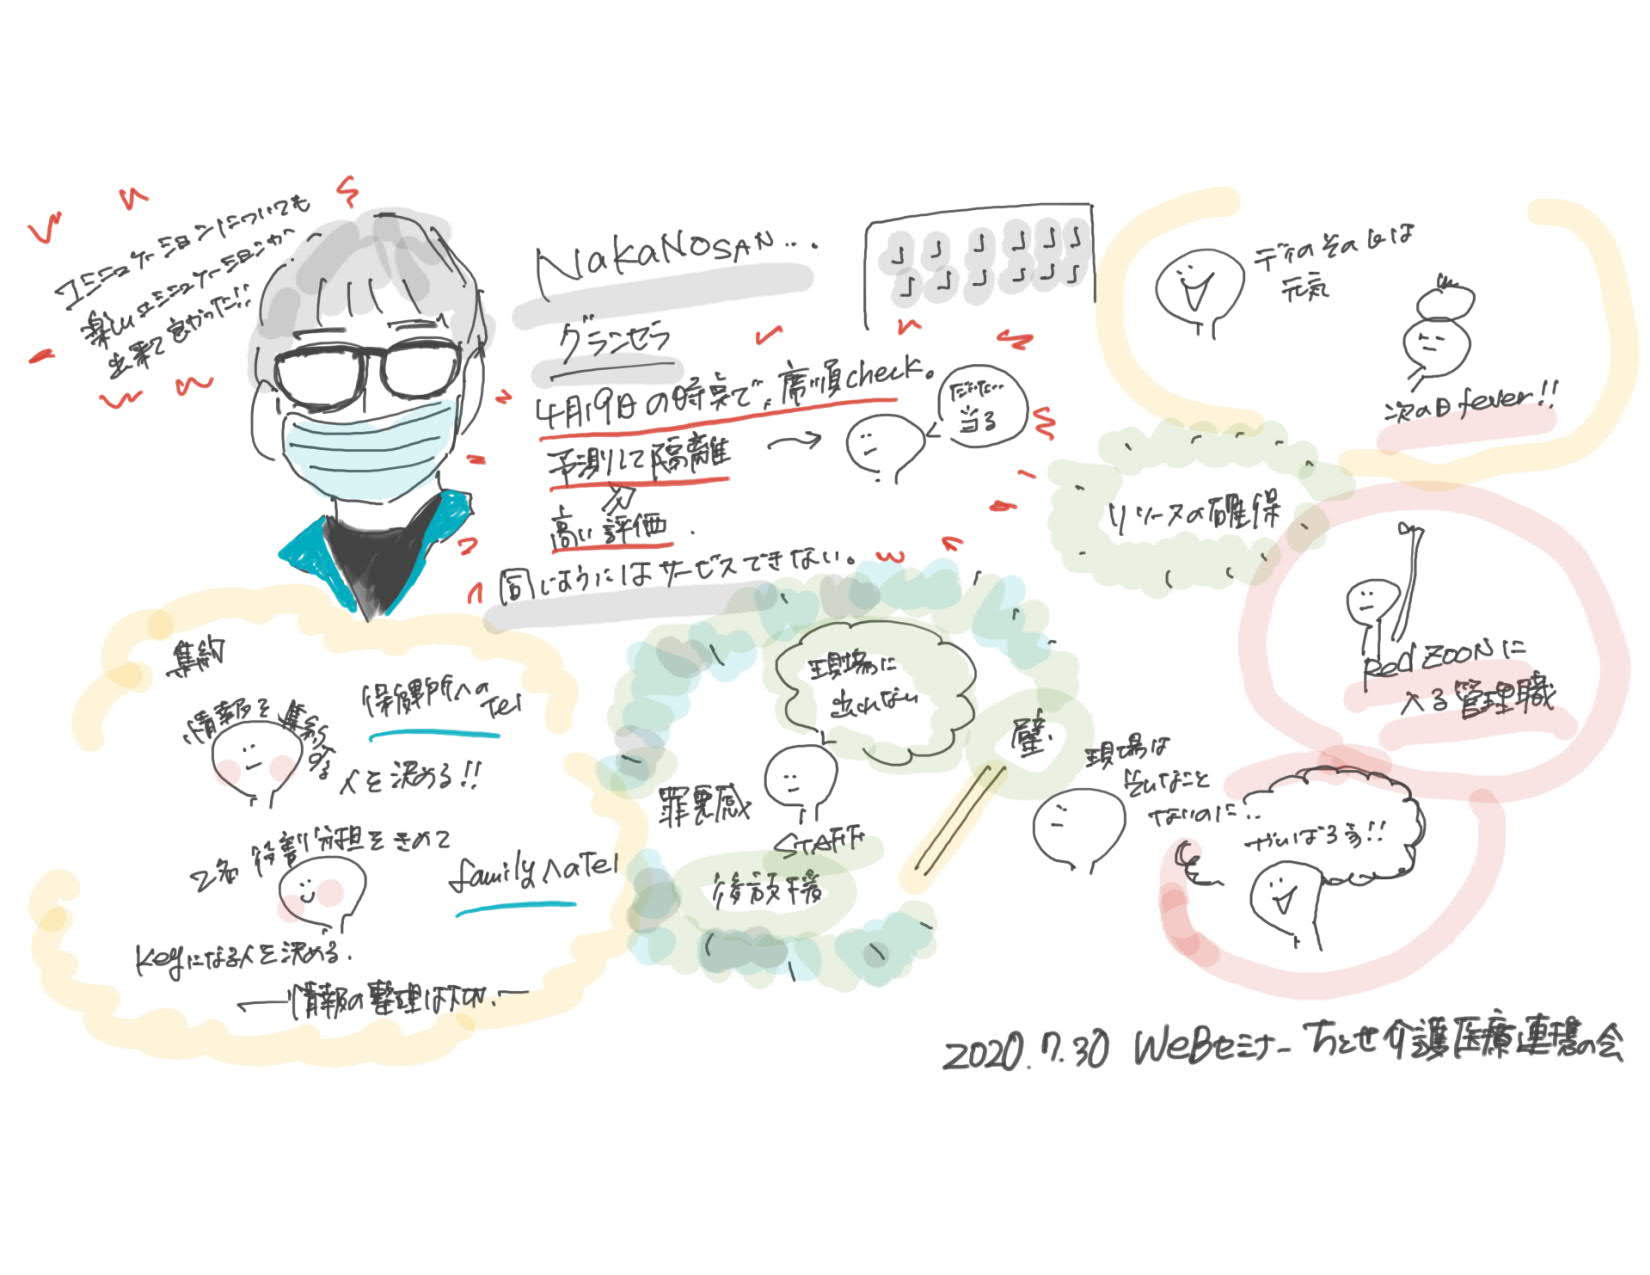 コミニュケーションについても
楽しいコミニュケーションが
出来て良かった!!
NakaNoSAN...
グランセラ
4月19日の時点で、席順check。
予測して隔離
高い評価.
だいたい
当る
同じようにはサービスできない。
デイのその日は
元気
次の日fever!!
リソースの確保
Red ZOONに
入る管理職
集約
情報を集約する
人を決める!!
保健所へのTel
2名 役割分担をきめて
familyへのTel
Keyになる人を決める.
情報の整理は大切.
現場に
出れない
罪悪感
STAFF
後方支援
壁
現場は
そんなこと
ないのに..
がんばろう!!
2020.7.30 WeBセミナー ちとせ介護医療連携の会